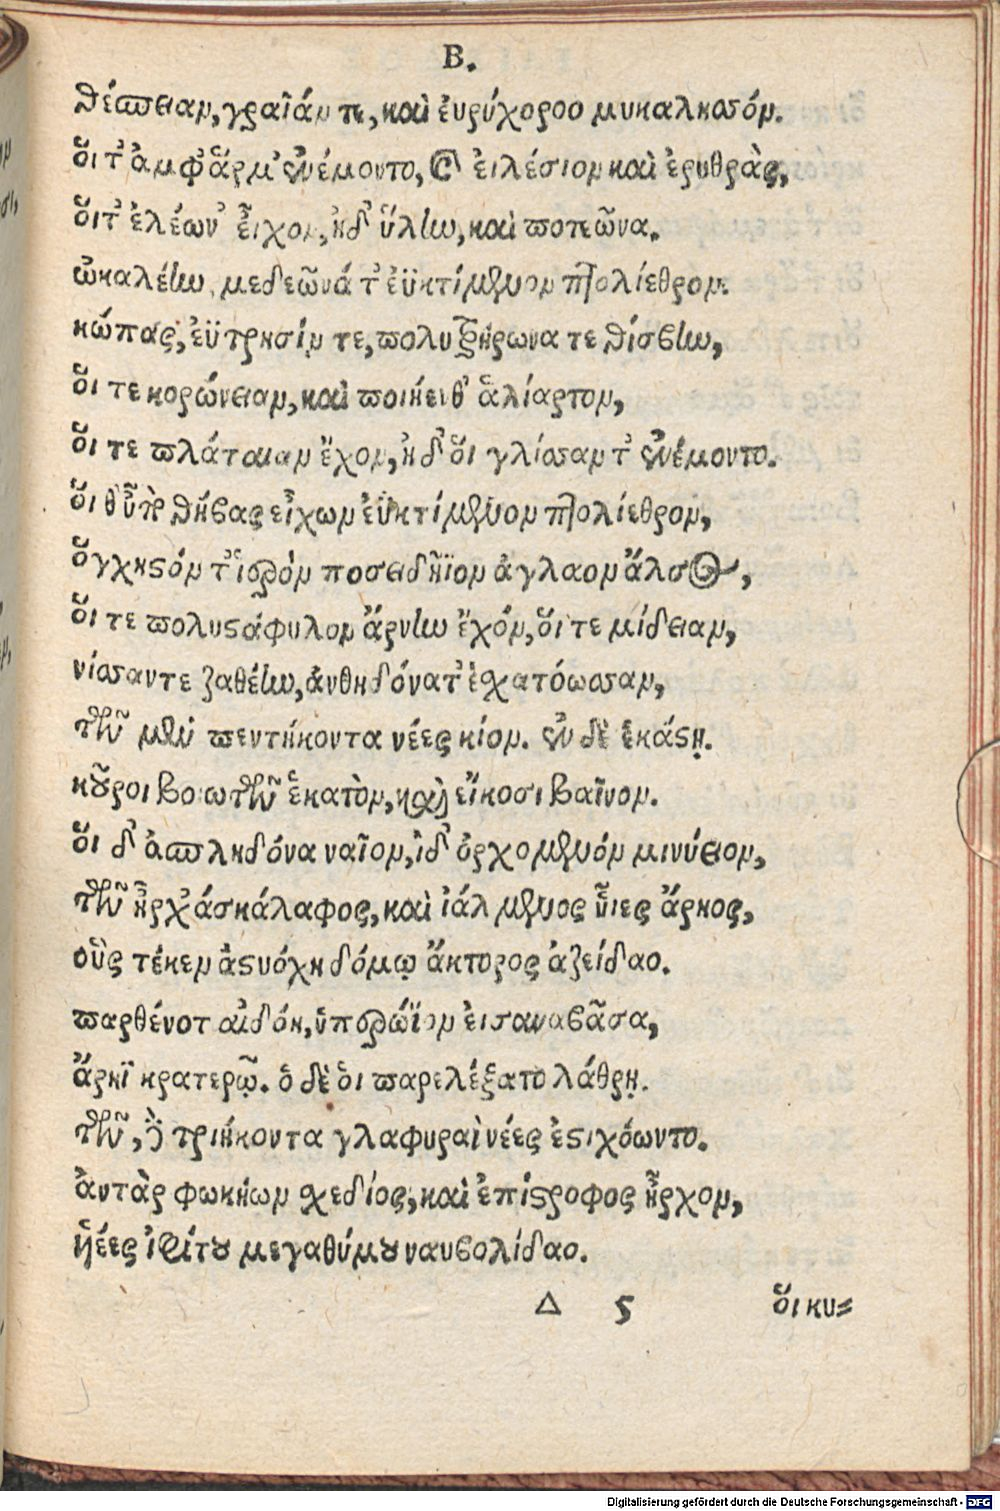 Β.
θέσπειαν, γραῖάν τε, καὶ ἐυρύχοροο μυκαλησόν.
ὅι τ' ἀμφ' ἅρμ' ἐνέμοντο, καὶ ἐιλέσιον καὶ ἐρυθρὰς,
ὅι τ' ἐλέων' ἔιχον, ἠδ' ὕλην, καὶ πετεῶνα.
ὠκαλέην, μεδεῶνά τ' ἐϋκτίμενον πτολίεθρον.
κώπας, ἐϋτρησίν τε, πολυτρήρωνα τε θίσβην,
ὅι τε κορώνειαν, καὶ ποιήενθ' ἁλίαρτον,
ὅι τε πλάταιαν ἔχον, ἠδ' ὅι γλίσσαντ' ἐνέμοντο.
ὅι θ' ὑπὸ θήβας εἶχων ἐϋκτίμενον πτολίεθρον,
ὄγχηστόν τ' ἱερὸν ποσειδήϊον ἀγλαον ἄλσος,
ὅι τε πολυστάφυλον ἄρνην ἔχόν, ὅι τε μίδειαν,
νίσσαντε ζαθέην, ἀνθηδόνατ' ἐσχατόωσσαν,
τῶν μὲν πεντήκοντα νέες κίον. ἐν δὲ ἑκάστῃ.
κοῦροι βοιωτῶν ἑκατὸν, καὶ ἔικοσι βαῖνον.
ὅι δ' ἀσπληδόνα ναῖον, ἰδ' ὀρχομενόν μινύειον,
τῶν ἦρχ' ἀσκάλαφος, καὶ ἰάλμενος ὗιες ἄρηος,
οὓς τέκεν ἀστυόχη δόμῳ ἄκτορος ἀζείδαο.
παρθένοτ αἰδόη, ὑπερώϊον ἐισαναβᾶσα,
ἄρηϊ κρατερῷ. ὁ δὲ ὁι παρελέξατο λάθρῃ.
τῶν, δὲ τριήκοντα γλαφυραὶ νέες ἐστιχόωντο.
ἀυτὰρ φωκήων σχεδίος, καὶ ἐπίστροφος ἦρχον,
ἡέες ἰφίτου μεγαθύμου ναυβολίδαο.
Δ 5 ὅι κυ=
Digitalisierung gefördert durch die Deutsche Forschungsgemeinschaft - DFG